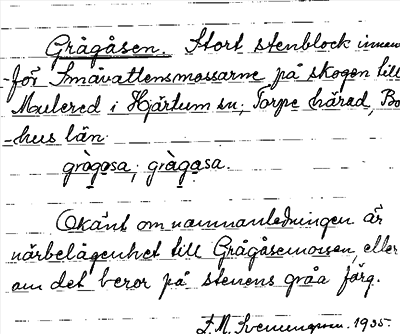 Grågåsen. Stort stenblock innan-
för Småvattensmossarne på skogen till
Maulered i Hjärtum sn, Torpe härad, Bo-
hus län.
grågåsa; gràgasa.
Okänt om namnanledningen är
närbelägenhet till Grågåsemossen, eller
om det beror på stenens gråa färg.
F.M. Svenungsson. 1935.